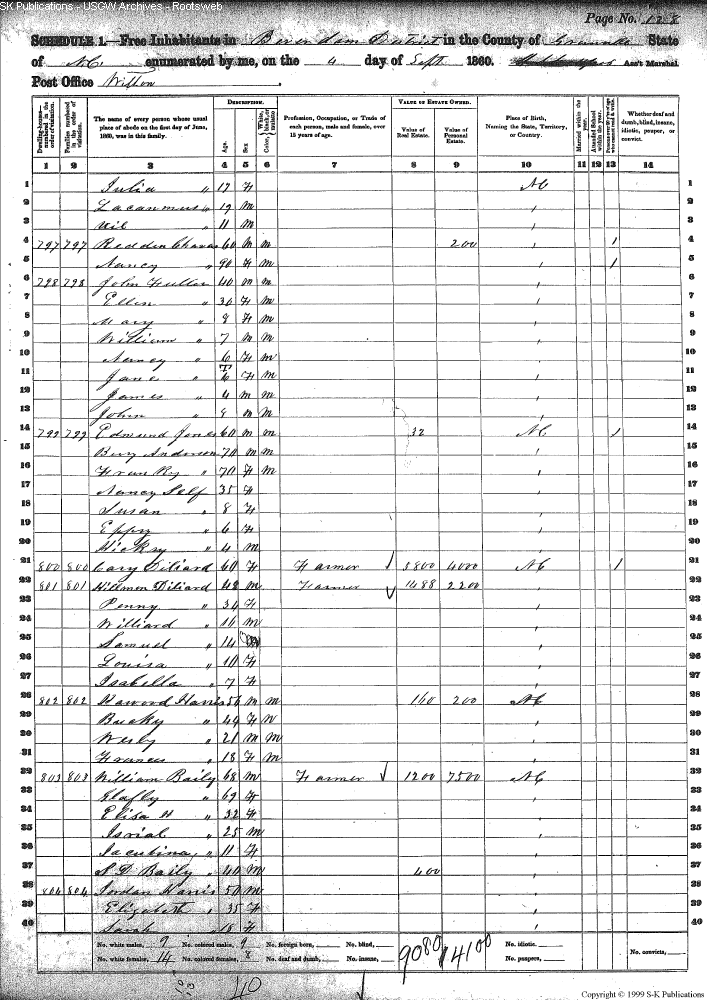 SK Publications - USGW Archives - Rootsweb
Page No. 128
SCHEDULE 1.—Free Inhabitants in Beverdam District in the County of State
of N.C. enumerated by me, on the 4 day of Sept. 1860. Ass't Marshal.
Post Office Wilton
Dwelling-house—numbered in the order of visitation. Families numbered in the order of visitation. The name of every person whose usual place of abode on the first day of June, 1860, was in this family. DESCRIPTION. Age. Sex. Color, White, black, or mulatto. Profession, Occupation, or Trade of each person, male and female, over 15 years of age. VALUE OF ESTATE OWNED. Value of Real Estate. Value of Personal Estate. Place of Birth, Naming the State, Territory, or Country. Married within the year. Attended School within the year. Whether deaf and dumb, blind, insane, idiotic, pauper, or convict.
1 2 3 4 5 6 7 8 9 10 11 12 13 14
1 Julia " 17 F NC 1
2 " 19 M " 2
3 " 11 M " 3
4 797 797 Redden Chavas 60 M M 200 " 1 4
5 Nancy " 90 F M " 1 5
6 798 798 John Fuller 40 M M " 6
7 Ellen " 30 F M " 7
8 Mary " 9 F M " 8
9 William " 7 M M " 9
10 Nancy " 6 F M " 10
11 Jane " 6 F M " 11
12 James " 4 M M " 12
13 John " 8 M M " 13
14 799 799 Edmund Jones 60 M M 32 NC 1 14
15 Anderson 70 M M " 15
16 " 70 F M " 16
17 Nancy Self 35 F " 17
18 Susan " 8 F " 18
19 Eppy " 6 F " 19
20 " 4 M " 20
21 800 800 Cary Diliard 60 F Farmer 5800 4000 NC 1 21
22 801 801 Hillmon Diliard 48 M Farmer 1488 2200 " 22
23 Penny " 34 F " 23
24 Williard " 16 M " 24
25 Samuel " 14 " 25
26 Louisa " 10 F " 26
27 Isabella " 7 F " 27
28 802 802 Harris 56 M M 160 200 NC 28
29 Bucky " 44 F " 29
30 Wesly " 21 M M " 30
31 Frances " 18 F M " 31
32 803 803 William Baily 68 M Farmer 1200 7500 NC 32
33 " 69 F " 33
34 Elisa H " 32 F " 34
35 Isrial " 25 M " 35
36 " 11 F " 36
37 S D Baily " 40 M 400 " 37
38 804 804 Jordan Harris 50 M " 38
39 Elizabeth " 35 F " 39
40 Sarah " 18 F " 40
No. white males, 9 No. colored males, 9 No. foreign born, No. blind, 9080 14100 No. idiotic, No. convicts,
No. white females, 14 No. colored females, 8 No. deaf and dumb, No. insane, No. paupers,
Copyright © 1999 S-K Publications